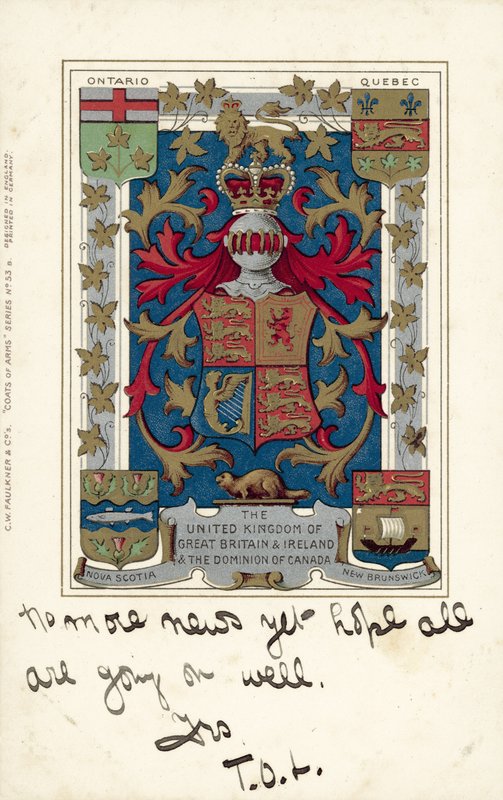 ONTARIO
QUEBEC
C.W. FAULKNER & CO'S. "COATS OF ARMS" SERIES NO 53 B.
DESIGNED IN ENGLAND.
PRINTED IN GERMANY.
THE
UNITED KINGDOM OF
GREAT BRITAIN & IRELAND
& THE DOMINION OF CANADA
NOVA SCOTIA
NEW BRUNSWICK
No more news yet hope all
are going on well.
Yrs
T.O.L.